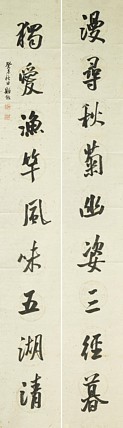 漫尋秋菊幽姿三徑暮
獨愛漁竿風味五湖清